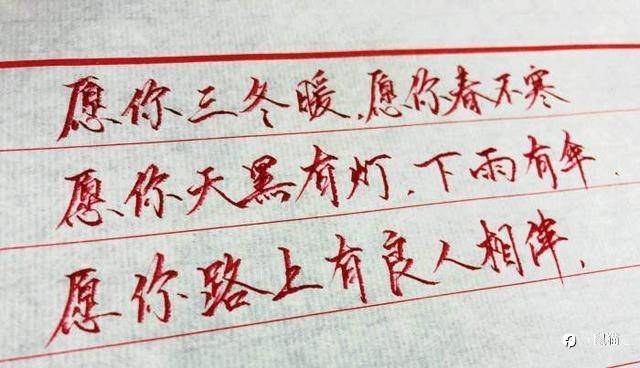 愿你三冬暖,愿你春不寒
愿你天黑有灯,下雨有伞.
愿你路上有良人相伴,